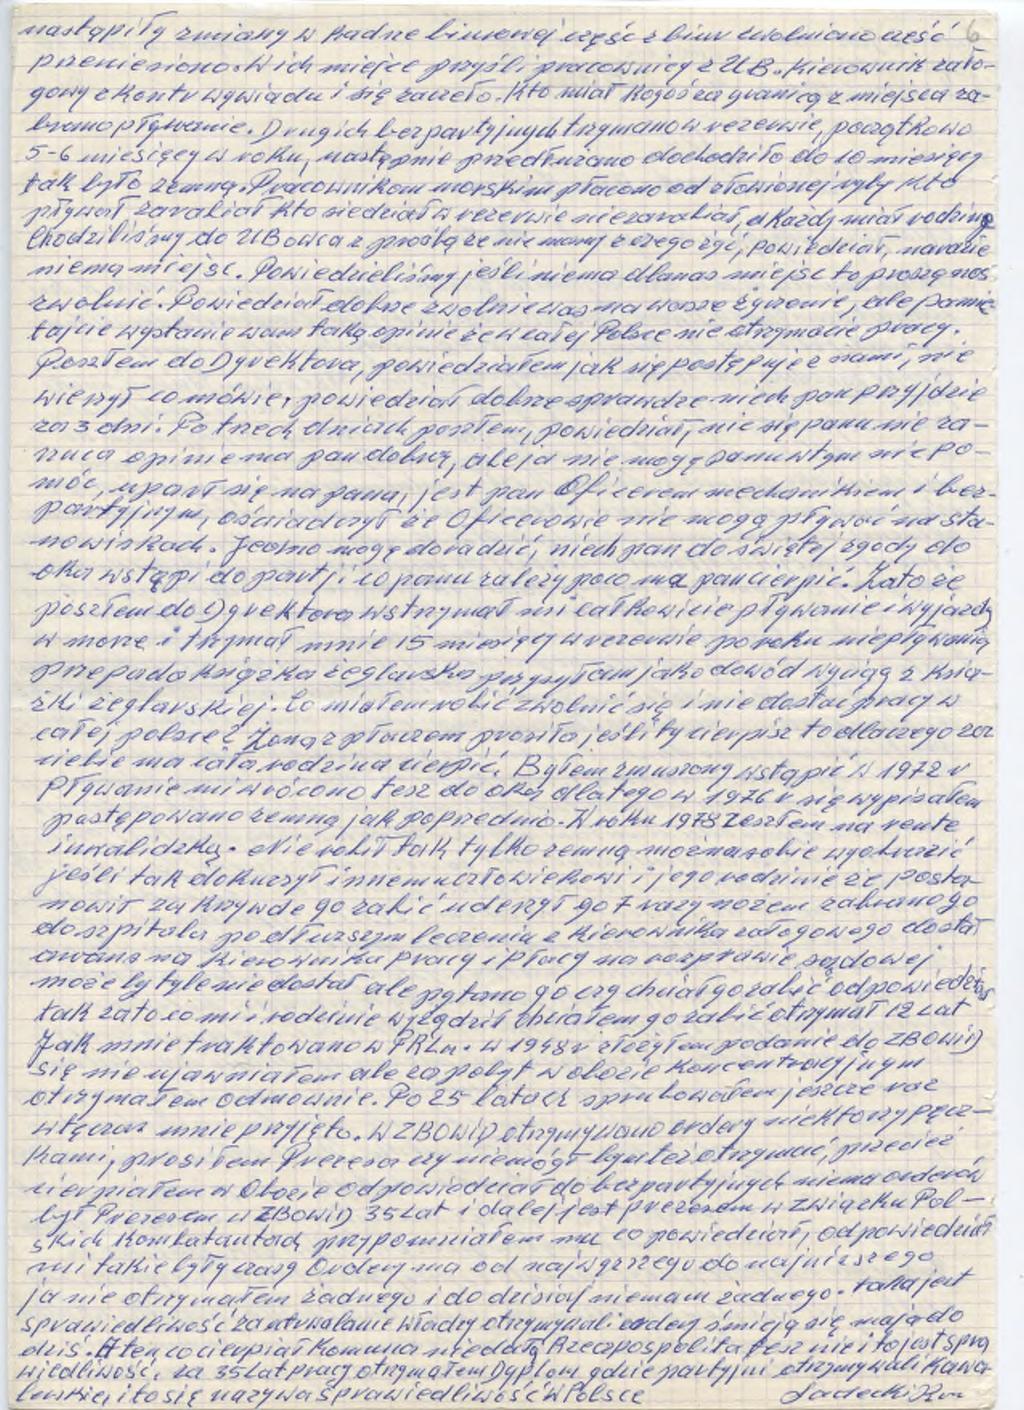 6
nastąpiły zmiany w kadrze biurowej część z biur zwolniono cześć
przeniesiono. W ich miejce pryśli pracownicy z UB. Kierownik zało-
gowy z kontr wywiadu i się zaczeło. Kto miał kogoś za granicą z miejsca za-
brano pływanie. Drugich bezpartyjnych trzymano w rezerwie, początkowo
5-6 miesięcy w roku, następnie przedłużano dochodziło do 10 miesięcy
tak było zemną. Pracownikom morskim płacono od złowionej ryby kto
pływał zarabiał kto siedział w rezerwie niezarabiał, a każdy miał rodzinę
Chodziliśmy do UBowca z prośbą że nie mamy z czego żyć, powiedział, narazie
niema miejsc. Powiedzieliśmy jeśli niema dlanas miejsc to proszę nas
zwolnić. Powiedział dobrze zwolnie was na wasze życzenie, ale pamię-
tajcie wystawie wam taką opinie że w całej Polsce nie otrzymacie pracy.
Poszłem do Dyrektora, powiedziałem jak się postępuje z nami, nie
wierzył co mówie, powiedział dobrze sprawdze niech pan przyjdzie
za 3 dni. Po trzech dniach poszłem, powiedział, nic się panu nie za-
rzuca opinie ma pan dobrą, ale ja nie mogę panu w tym nic po-
móc, uparł się na pana, jest pan Oficerem mechanikiem i bez-
partyjnym, oświadczył że Oficerowie nie mogą pływać na sta-
nowiskach. Jedno mogę doradzić, niech pan do świętej zgody do
oka wstąpi do partji co panu zależy poco ma pan cierpić. Zato że
poszłem do Dyrektora wstrzymał mi całkowicie pływanie i wyjazdy
w morze i trzymał mnie 15 miesięcy w rezerwie po roku niepływania
przepada książka żeglarska przysyłam jako dowód wyciąg z ksią-
żki żeglarskiej. Co miałem robić zwolnić się i nie dostać pracy w
całej polsce? Żona z płaczem prosiła jeśli ty cierpisz to dlaczego za
ciebie ma cała rodzina cierpić. Byłem zmuszony wstąpić W 1972 r
Pływanie mi wrócono tesz do oka dlatego w 1976 r się wypisałem
postępowano zemną jak poprzednio. W roku 1978 zeszłem na rente
inwalidzką. Nie robił tak tylko zemną można sobie wyobrazić
jeśli tak dokuczył innemu człowiekowi i jego rodzinie że posta-
nowił za krzywde go zabić uderzył go 7 razy nożem zabrano go
do szpitala po dłuższym leczeniu z kierownika załogowego dostał
awans na kierownika pracy i płacy na rozprawie sądowej
może by tyle nie dostał ale pytano go czy chciał go zabić odpowiedział
tak zato co mi i rodzinie wyrządził chciałem go zabić otrzymał 12 lat
Jak mnie traktowano w PRLu. w 1948 r złożyłem podanie do ZBOWiD
się nie ujawniałem ale za pobyt w obozie koncentracyjnym
otrzymałem odmownie. Po 25 latach sprubowałem jeszcze raz
wtęczas mnie przyjęto. W ZBOWiD otrzymywano ordery niektórzy pęcz-
kami, prosiłem Prezesa czy niemógł bym też otrzymać, przecież
cierpiałem w Obozie odpowiedział do bezpartyjnych niema orderów
był Prezesem w ZBOWiD 35 lat i dalej jest prezesem w Związku Pol-
skich Kombatantach przypomniałem mu co powiedział, odpowiedział
mi takie były czasy Ordery ma od najwyrzszego do najniszszego
ja nie otrzymałem żadnego i do dzisiaj niemam żadnego. taka jest
sprawiedliwość za utrwalanie władzy otrzymywali ordery śmieją się mają do
dziś. A ten co cierpiał Komuna niedała Rzeczpospolita tesz nie i to jest spra
wiedliwość, za 35 lat pracy otrzymałem Dyplom, gdzie partyjni otrzymywali Kawa-
lerskie, i to się nazywa sprawiedliwość w Polsce